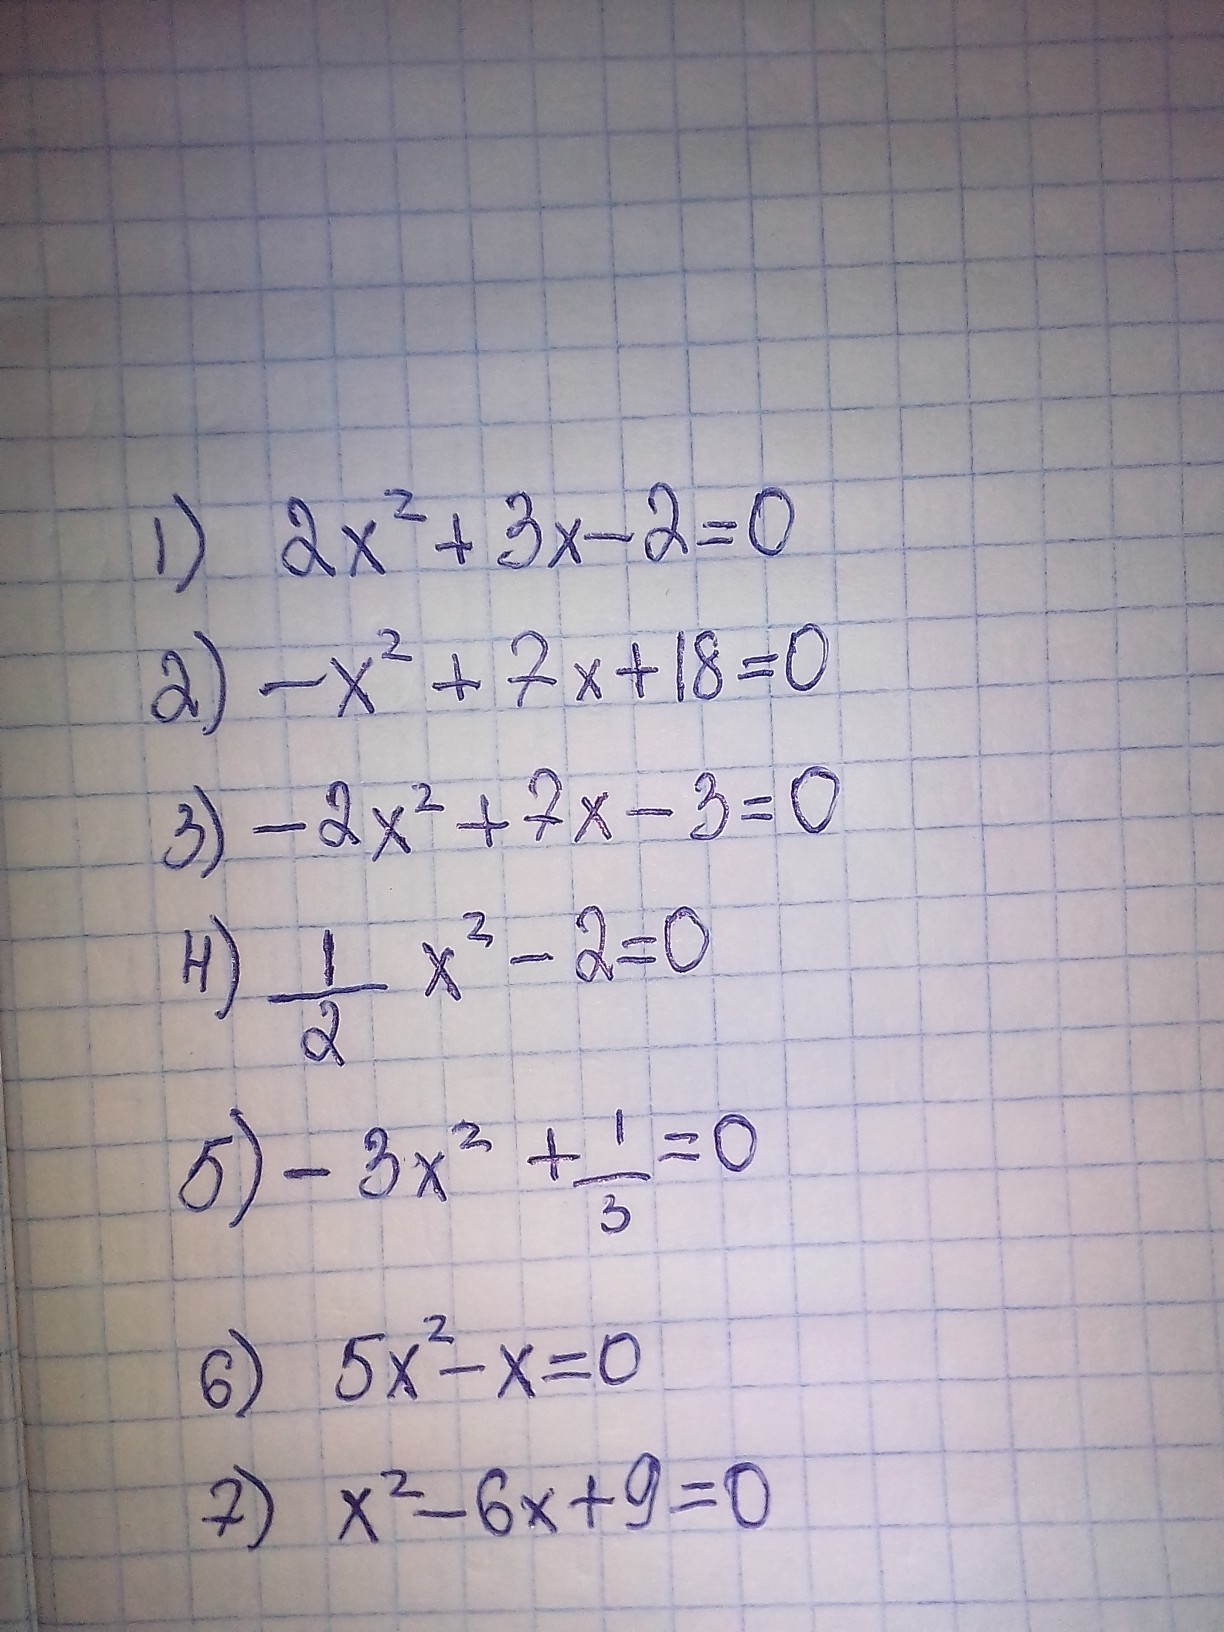 1) 2x² + 3x - 2 = 0
2) -x² + 7x + 18 = 0
3) -2x² + 7x - 3 = 0
4) 1/2 x² - 2 = 0
5) -3x² + 1/3 = 0
6) 5x² - x = 0
7) x² - 6x + 9 = 0